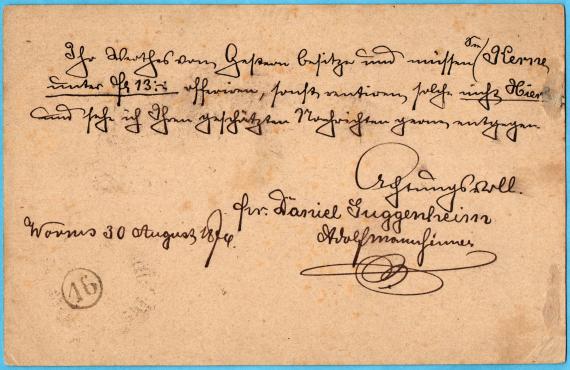 Ihr Werthes vom Gestern besitze und müssen Sie Kerne
unter 13 offeriren, sonst rentiren solche nicht Hier
und sehe ich Ihren geschätzten Nachrichten gerne entgegen
Achtungsvoll.
Daniel Guggenheim
Worms 30 August
16